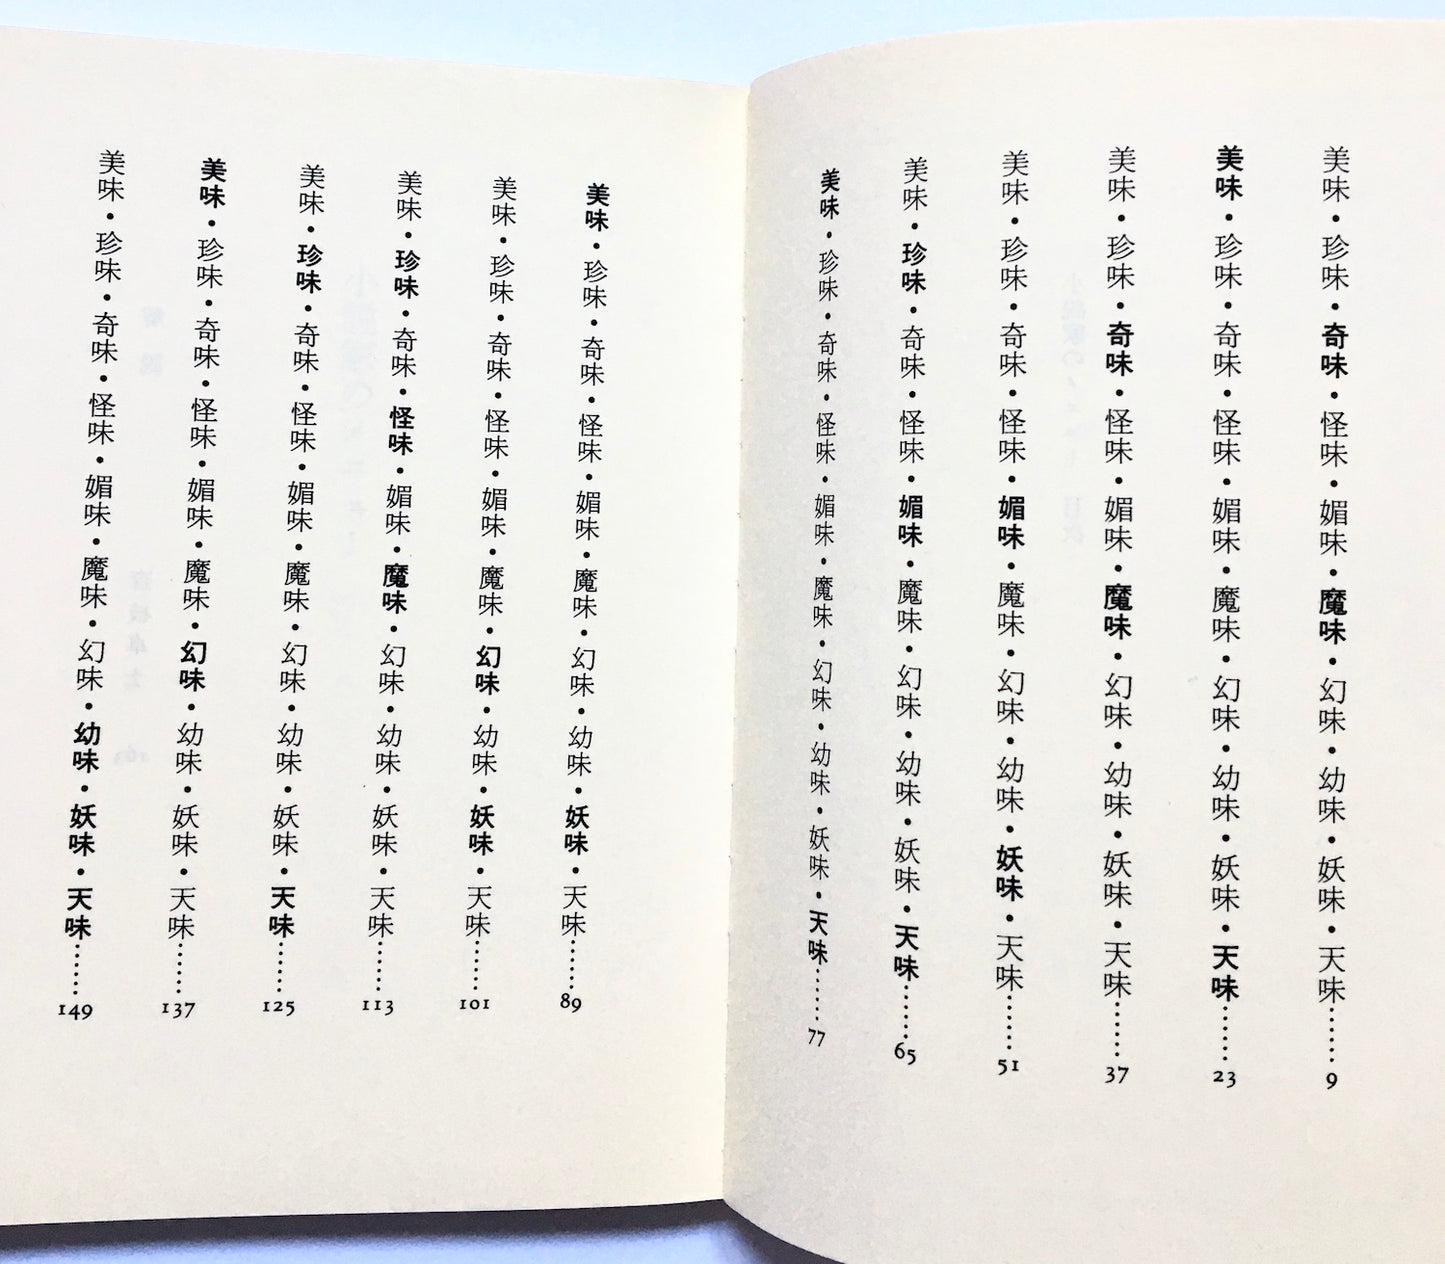 美味・珍味・奇味・怪味・媚味・魔味・幻味・幼味・妖味・天味……9
美味・珍味・奇味・怪味・媚味・魔味・幻味・幼味・妖味・天味……23
美味・珍味・奇味・怪味・媚味・魔味・幻味・幼味・妖味・天味……37
美味・珍味・奇味・怪味・媚味・魔味・幻味・幼味・妖味・天味……51
美味・珍味・奇味・怪味・媚味・魔味・幻味・幼味・妖味・天味……65
美味・珍味・奇味・怪味・媚味・魔味・幻味・幼味・妖味・天味……77
美味・珍味・奇味・怪味・媚味・魔味・幻味・幼味・妖味・天味……89
美味・珍味・奇味・怪味・媚味・魔味・幻味・幼味・妖味・天味……101
美味・珍味・奇味・怪味・媚味・魔味・幻味・幼味・妖味・天味……113
美味・珍味・奇味・怪味・媚味・魔味・幻味・幼味・妖味・天味……125
美味・珍味・奇味・怪味・媚味・魔味・幻味・幼味・妖味・天味……137
美味・珍味・奇味・怪味・媚味・魔味・幻味・幼味・妖味・天味……149